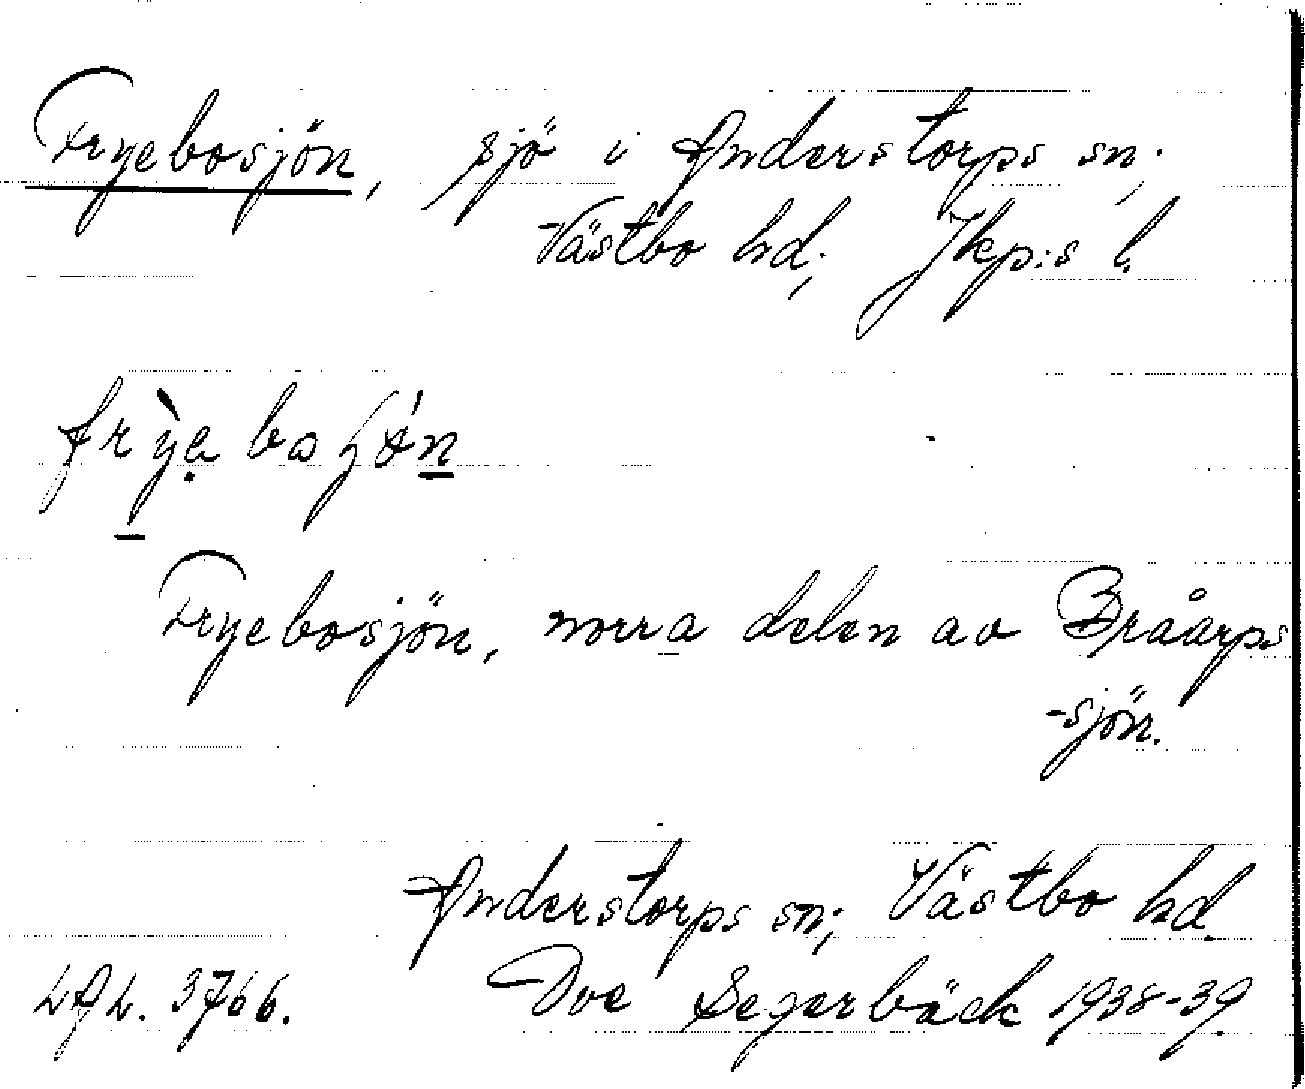 Fryebosjön, sjö i Anderstorps sn;
Västbo hd; Jkp:s l.
Fryebosjön, norra delen av Bråarps
-sjön.
Anderstorps sn; Västbo hd.
LAL. 3766. Ove Segerbäck 1938-39